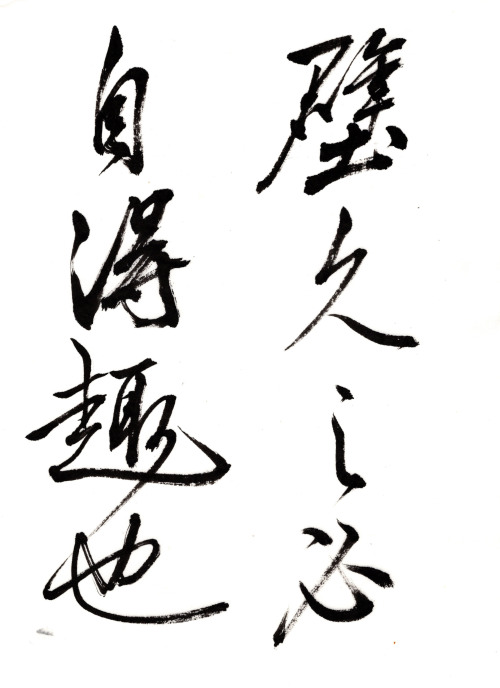 壁久之必
自得趣也